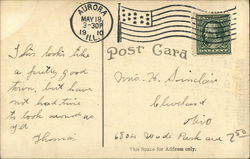 AURORA
MAY 18
3-30P
1910
ILL.
Post Card
This looks like
a pretty good
town, but have
not had time
to look around as
yet
Thomas
Mrs. H. Sinclair
Cleveland
Ohio
6804 Wade Park ave
This Space for Address only.